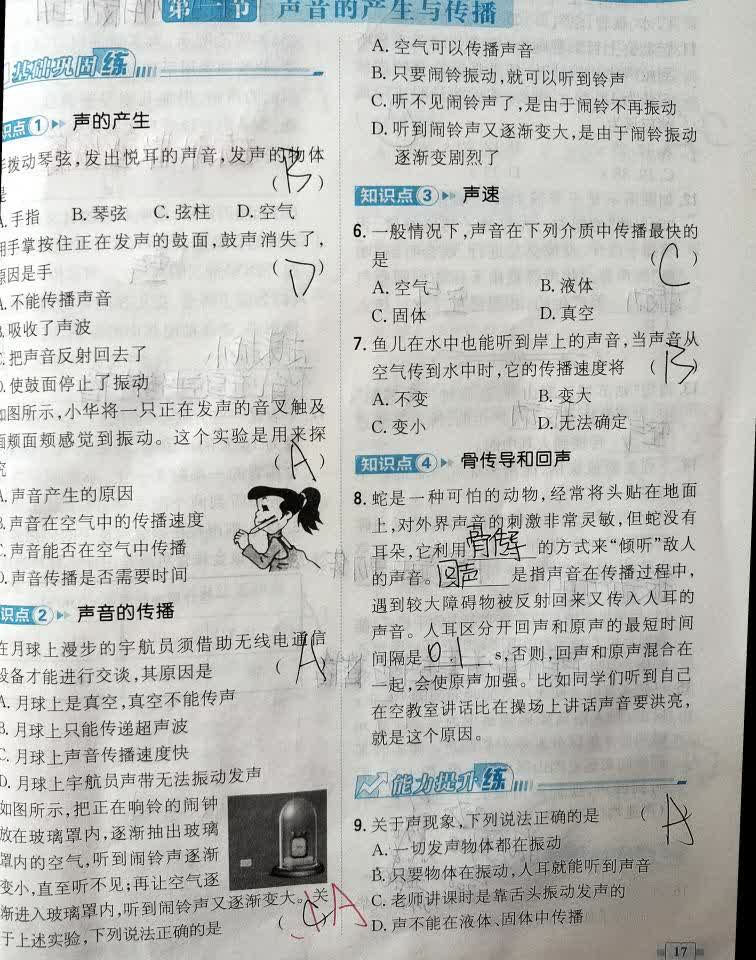 第一节 声音的产生与传播
基础巩固练
识点1 声的产生
拨动琴弦,发出悦耳的声音,发声的物体
是 (B)
A.手指 B.琴弦 C.弦柱 D.空气
用手掌按住正在发声的鼓面,鼓声消失了,
原因是手 (D)
A.不能传播声音
B.吸收了声波
C.把声音反射回去了
D.使鼓面停止了振动
如图所示,小华将一只正在发声的音叉触及
面颊感觉到振动。这个实验是用来探
究 (A)
A.声音产生的原因
B.声音在空气中的传播速度
C.声音能否在空气中传播
D.声音传播是否需要时间
识点2 声音的传播
在月球上漫步的宇航员须借助无线电通信
设备才能进行交谈,其原因是 (A)
A.月球上是真空,真空不能传声
B.月球上只能传递超声波
C.月球上声音传播速度快
D.月球上宇航员声带无法振动发声
如图所示,把正在响铃的闹钟
放在玻璃罩内,逐渐抽出玻璃
罩内的空气,听到闹铃声逐渐
变小,直至听不见;再让空气逐
渐进入玻璃罩内,听到闹铃声又逐渐变大。关
于上述实验,下列说法正确的是 (C) A
A.空气可以传播声音
B.只要闹铃振动,就可以听到铃声
C.听不见闹铃声了,是由于闹铃不再振动
D.听到闹铃声又逐渐变大,是由于闹铃振动
逐渐变剧烈了
知识点3 声速
6.一般情况下,声音在下列介质中传播最快的
是 (C)
A.空气 B.液体
C.固体 D.真空
7.鱼儿在水中也能听到岸上的声音,当声音从
空气传到水中时,它的传播速度将 (B)
A.不变 B.变大
C.变小 D.无法确定
知识点4 骨传导和回声
8.蛇是一种可怕的动物,经常将头贴在地面
上,对外界声音的刺激非常灵敏,但蛇没有
耳朵,它利用骨传导的方式来“倾听”敌人
的声音。回声是指声音在传播过程中,
遇到较大障碍物被反射回来又传入人耳的
声音。人耳区分开回声和原声的最短时间
间隔是0.1s,否则,回声和原声混合在
一起,会使原声加强。比如同学们听到自己
在空教室讲话比在操场上讲话声音要洪亮,
就是这个原因。
能力提升练
9.关于声现象,下列说法正确的是 (A
A.一切发声物体都在振动
B.只要物体在振动,人耳就能听到声音
C.老师讲课时是靠舌头振动发声的
D.声不能在液体、固体中传播
17